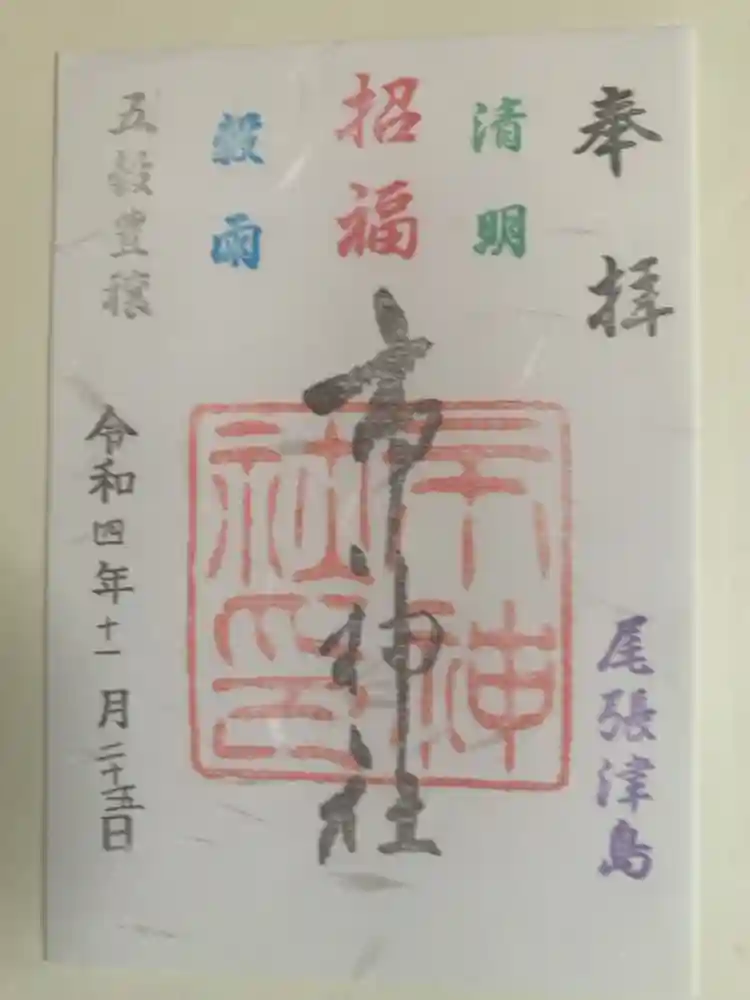 奉拝
尾張津島
清明
招福
市神社
市神社印
穀雨
五穀豊穣
令和四年十一月二十五日